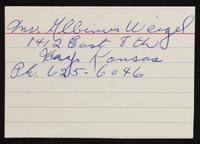 Mrs. Albinus Weigel
1412 East 8th
Hays Kansas
Ph. 625-6046